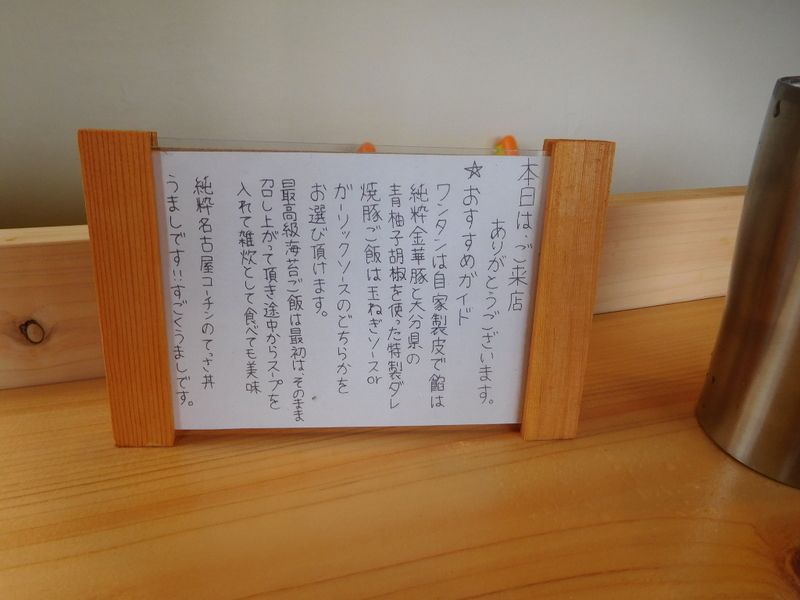 本日は、ご来店
ありがとうございます。
☆おすすめガイド
ワンタンは自家製皮で餡は
純粋金華豚と大分県の
青柚子胡椒を使った特製ダレ
焼豚ご飯は玉ねぎソースor
ガーリックソースのどちらかを
お選び頂けます。
最高級海苔ご飯は最初は、そのまま
召し上がって頂き途中からスープを
入れて雑炊として食べても美味
純粋名古屋コーチンのてっさ丼
うましです!!すごくうましです。